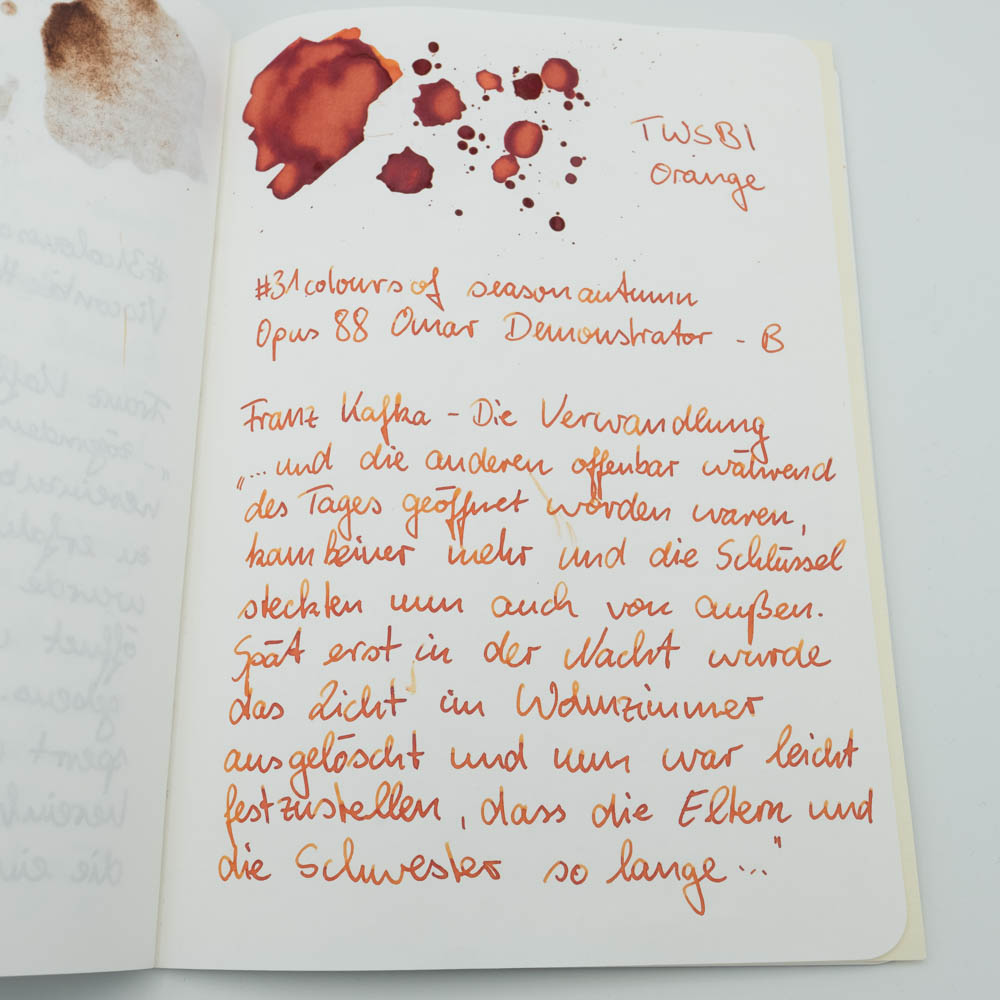 TWSBI
Orange
#31coloursof seasonautumn
Opus 88 Omar Demonstrator - B
Franz Kafka - Die Verwandlung
"...und die anderen offenbar während
des Tages geöffnet worden waren,
kam keiner mehr und die Schlüssel
steckten nun auch von außen.
Spät erst in der Nacht wurde
das Licht im Wohnzimmer
ausgelöscht und nun war leicht
festzustellen, dass die Eltern und
die Schwester so lange..."